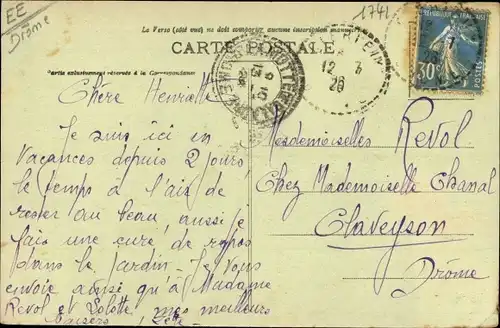 EE
Drôme
1741
Le Verso (côté vue) ne doit comporter aucune inscription
CARTE POSTALE
Partie exclusivement réservée à la Correspondance
12 - 3
26
RÉPUBLIQUE FRANÇAISE
30c
POSTES
Chère Henriette
Je suis ici en
vacances depuis 2 jours
le temps à l'air de
rester au beau, aussi je
fais une cure de repos
dans le jardin - Je vous
envoie ainsi qu'à Madame
Revol et Lolotte mes meilleurs
baisers
Mesdemoiselles Revol
Chez Mademoiselle Chanal
Claveyson
Drôme